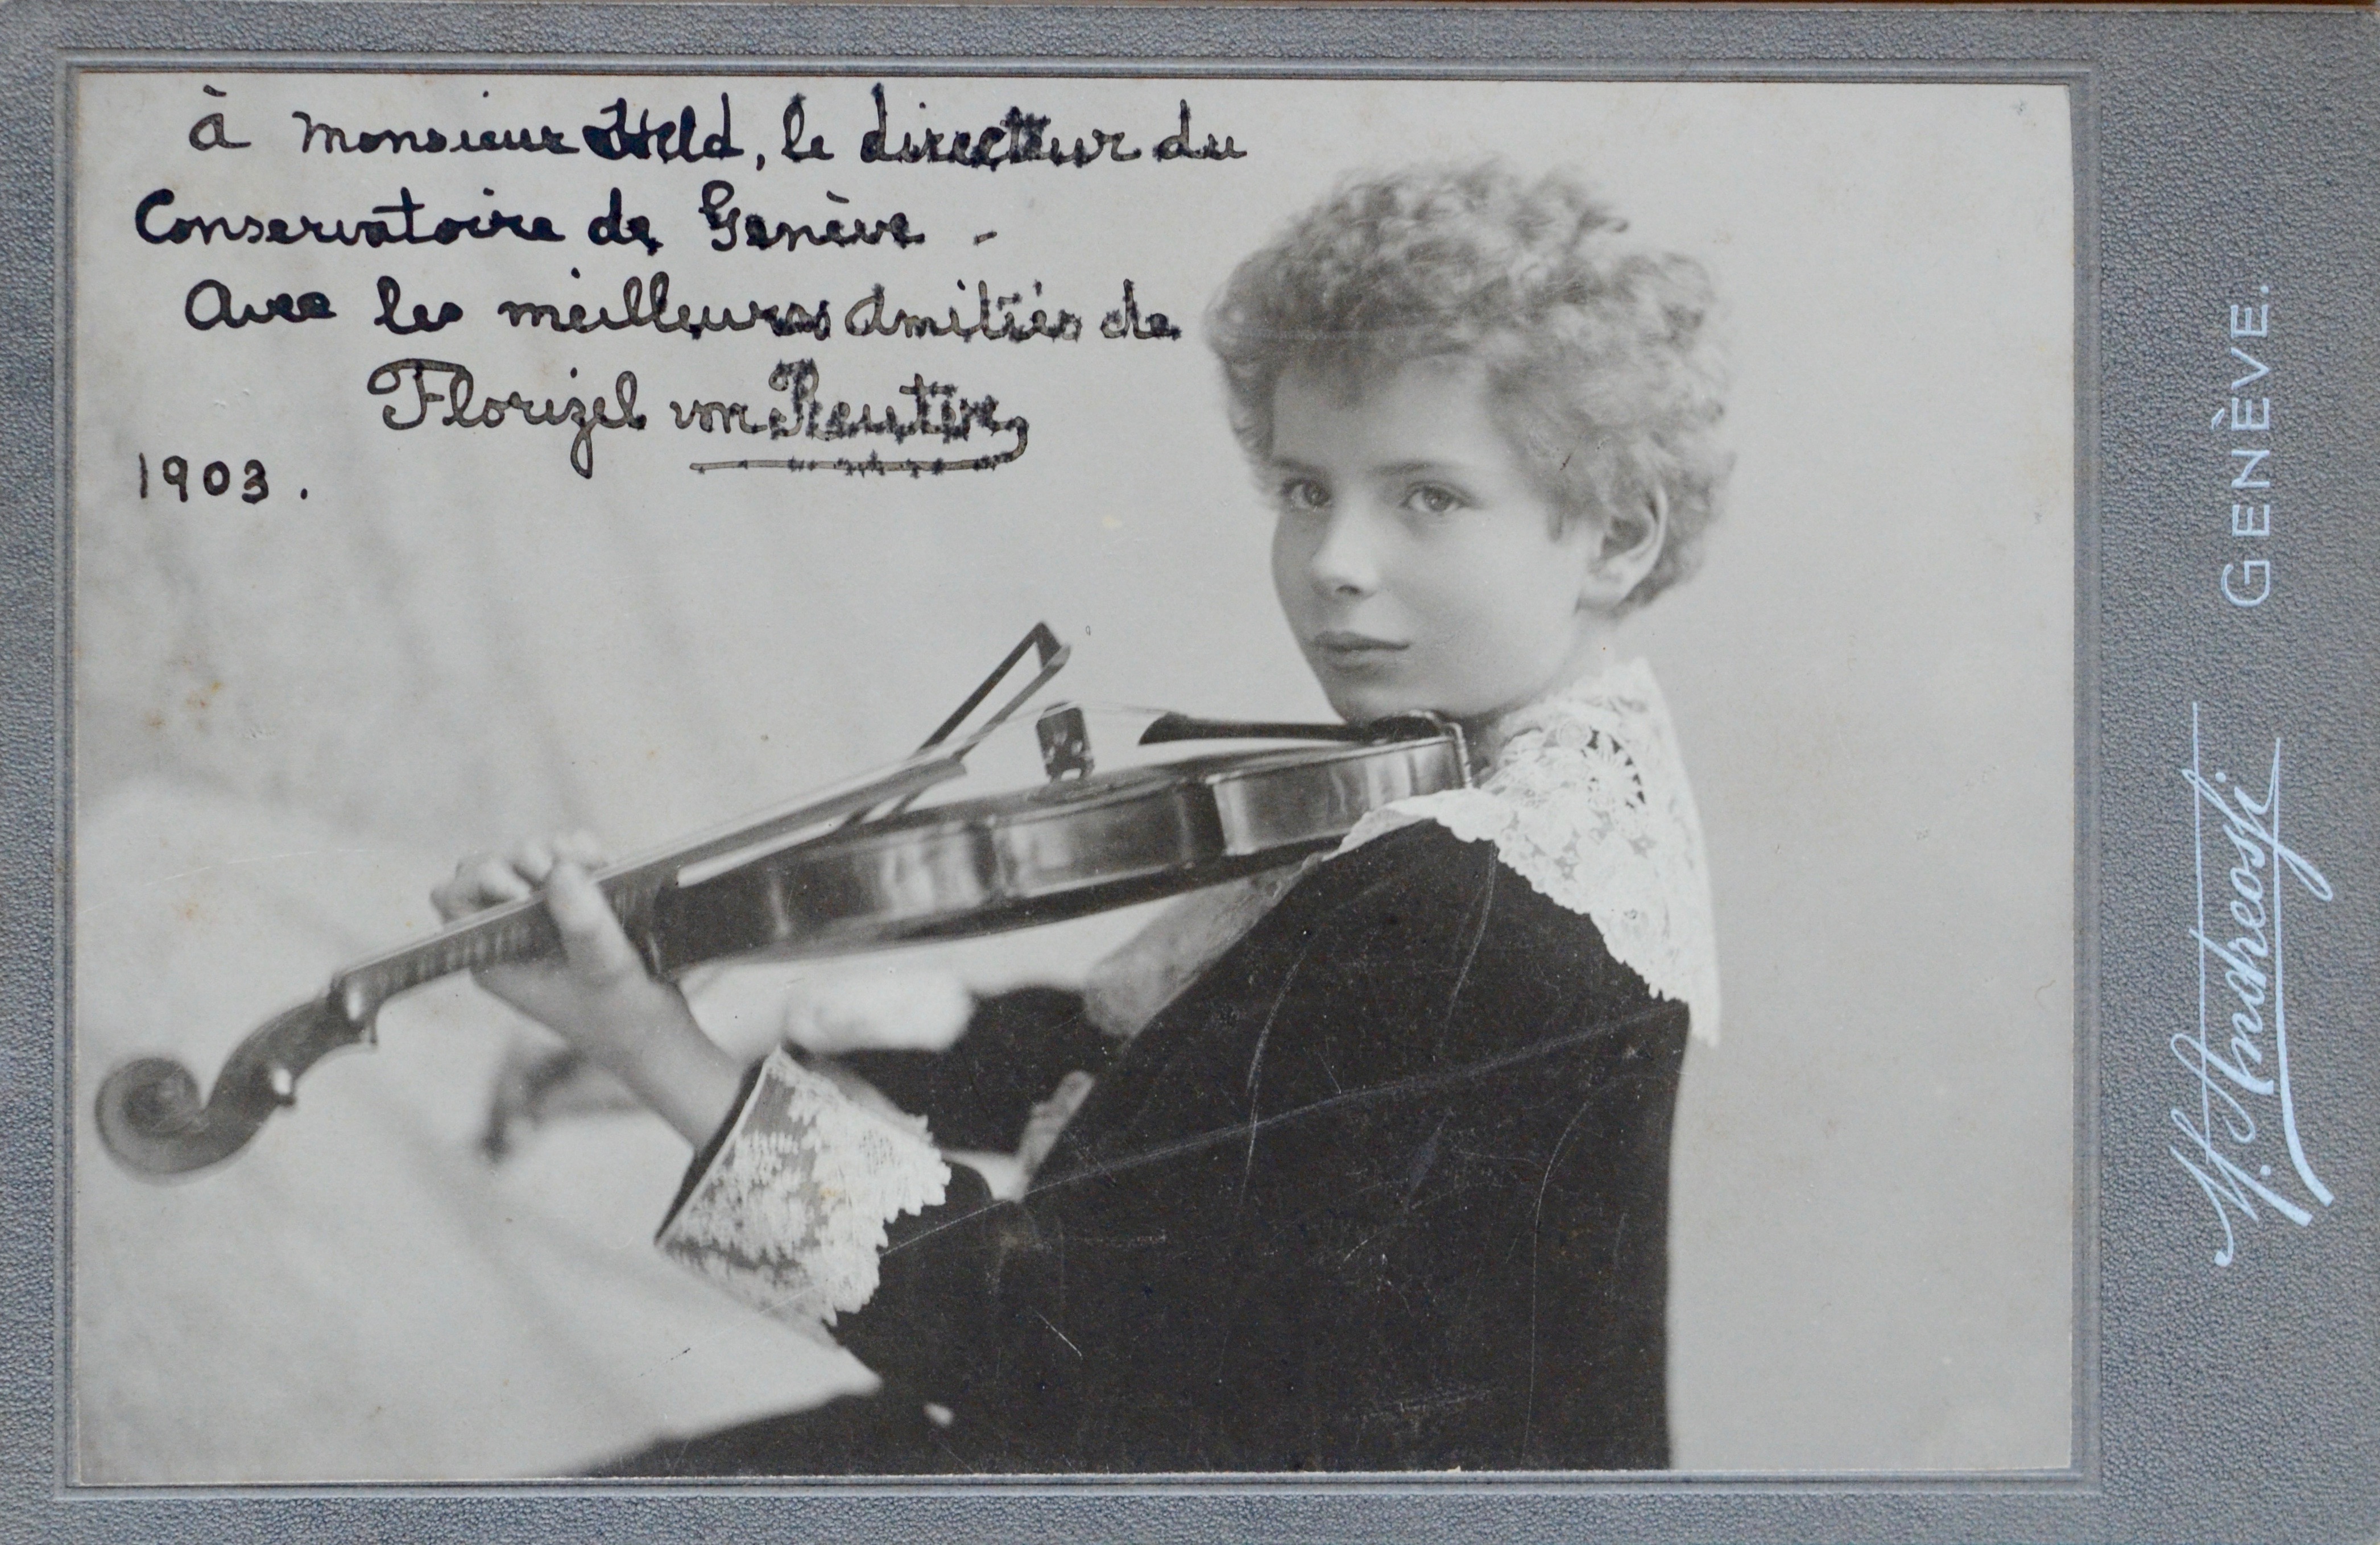 à Monsieur Held, le directeur du
Conservatoire de Genève -
Avec les meilleures amitiés de
Florizel von Reuter
1903.
M. Andreossi
GENÈVE.